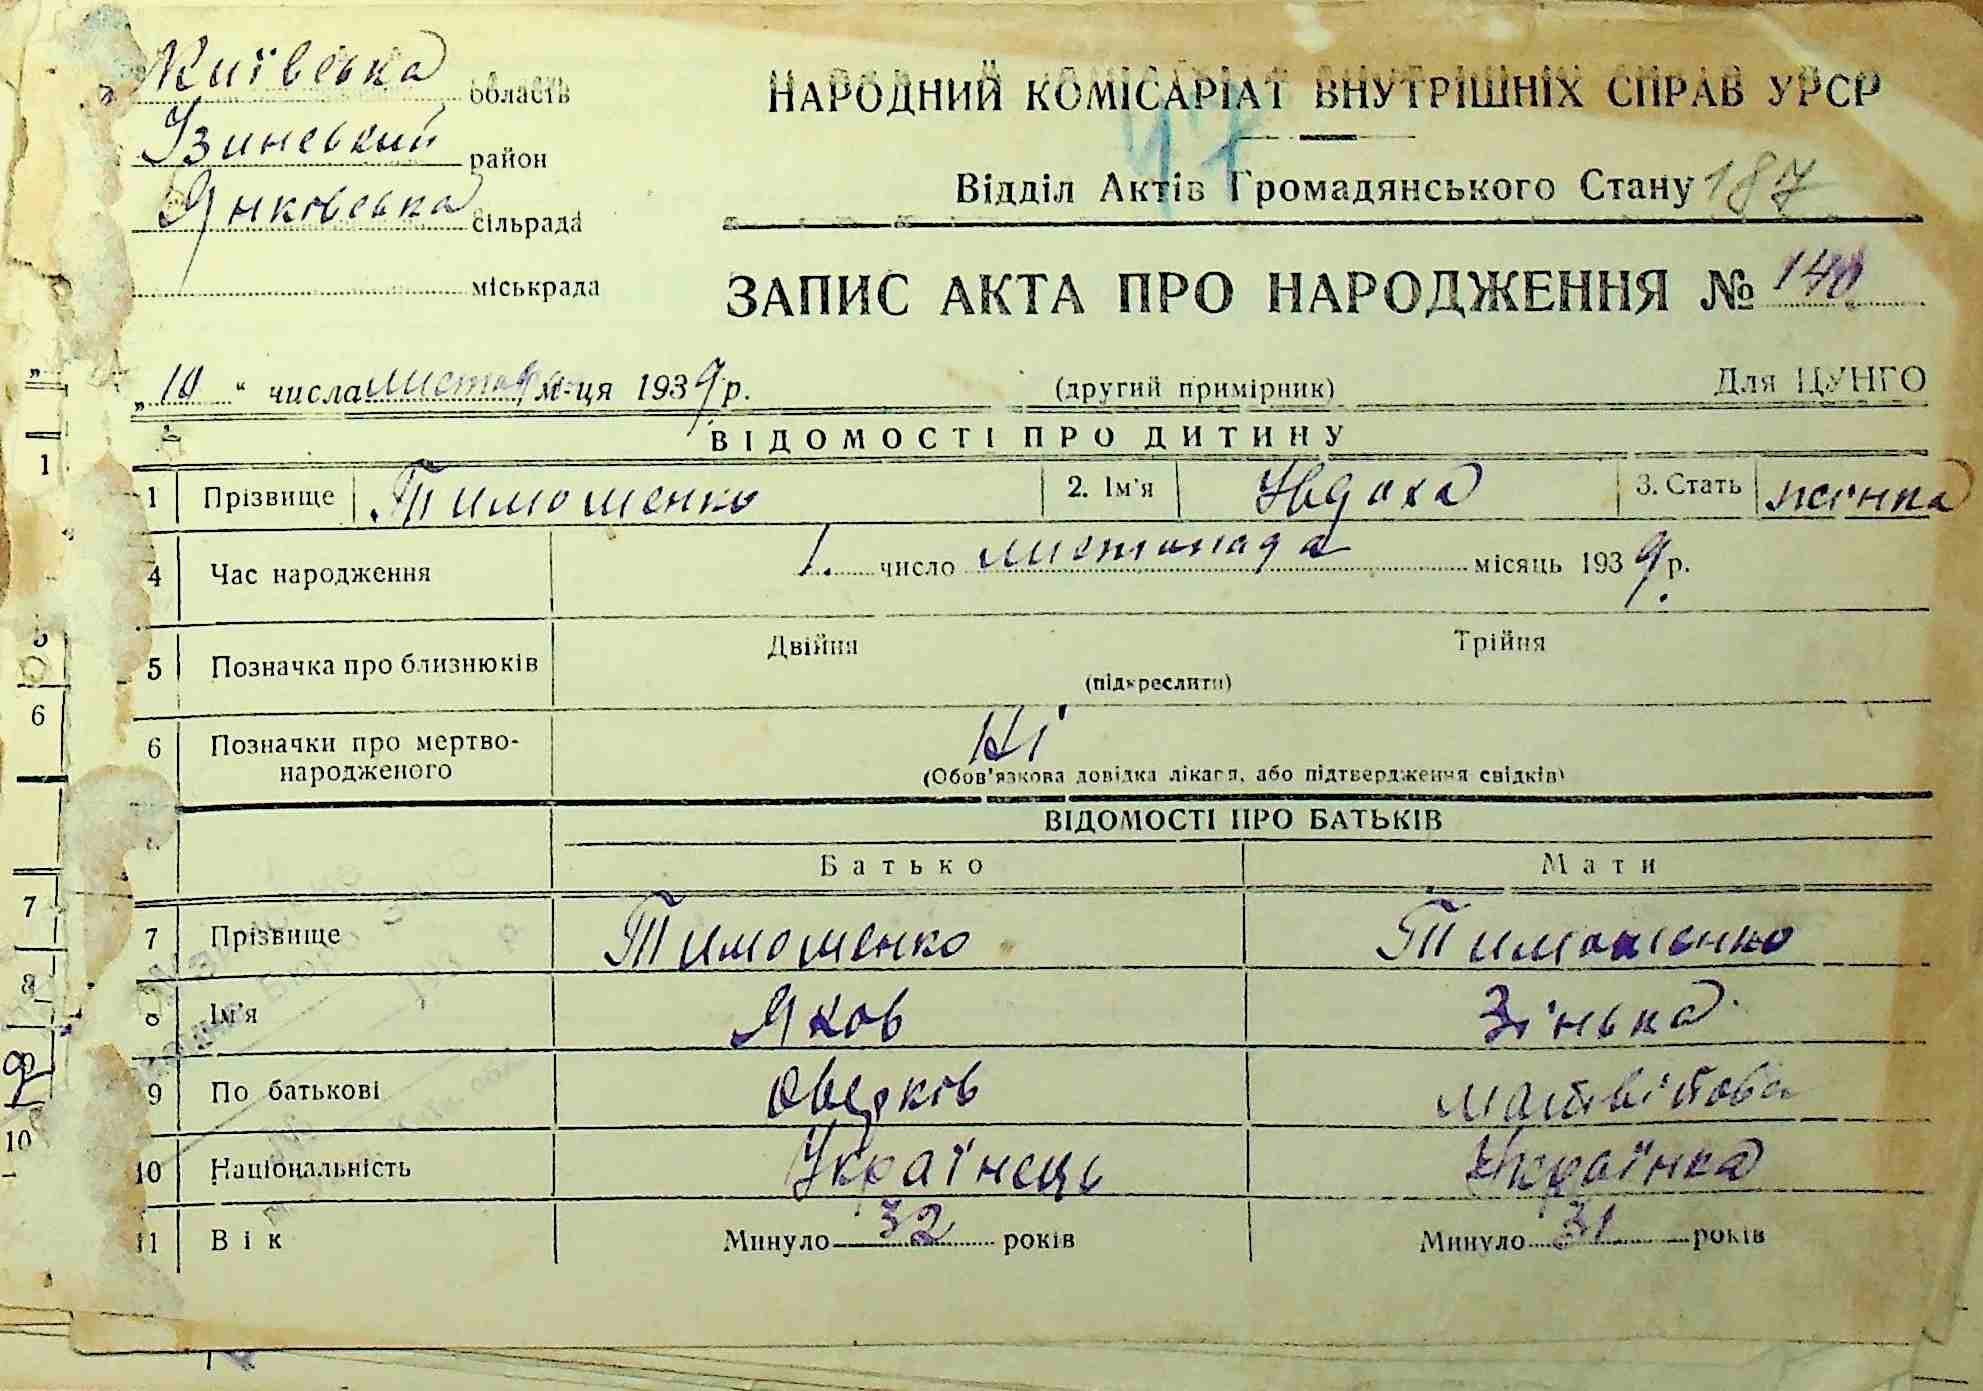 Київська область
Узинський район
Янківська сільрада
міськрада
НАРОДНИЙ КОМІСАРІАТ ВНУТРІШНІХ СПРАВ УРСР
47
Відділ Актів Громадянського Стану 187
ЗАПИС АКТА ПРО НАРОДЖЕННЯ № 140
„10“ числа листопада м-ця 1939 р. (другий примірник) Для ЦУНГО
ВІДОМОСТІ ПРО ДИТИНУ
1 Прізвище Тимошенко 2. Ім'я Увдоха 3. Стать жінка
4 Час народження 1. число листопада місяць 1939 р.
5 Позначка про близнюків Двійня Трійня
(підкреслити)
6 Позначки про мертво-народженого Ні
(Обов'язкова довідка лікаря, або підтвердження свідків)
ВІДОМОСТІ ПРО БАТЬКІВ
Батько Мати
7 Прізвище Тимошенко Тимошенко
8 Ім'я Яков Зінька
9 По батькові Оверков Матвійова
10 Національність Українець Українка
11 Вік Минуло 32 років Минуло 31 років